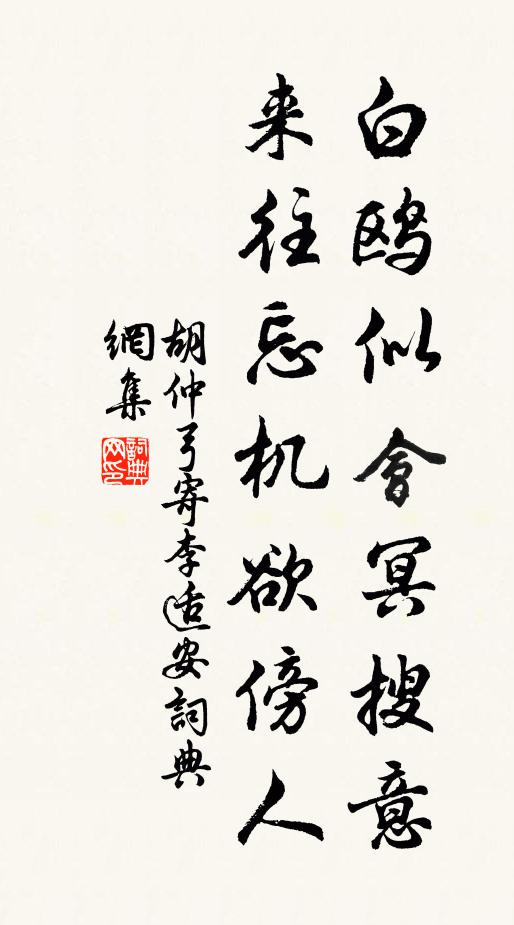 白鸥似會冥搜意
来往忘机欲傍人
胡仲弓寄李适安詞典
網集
詞典
网印